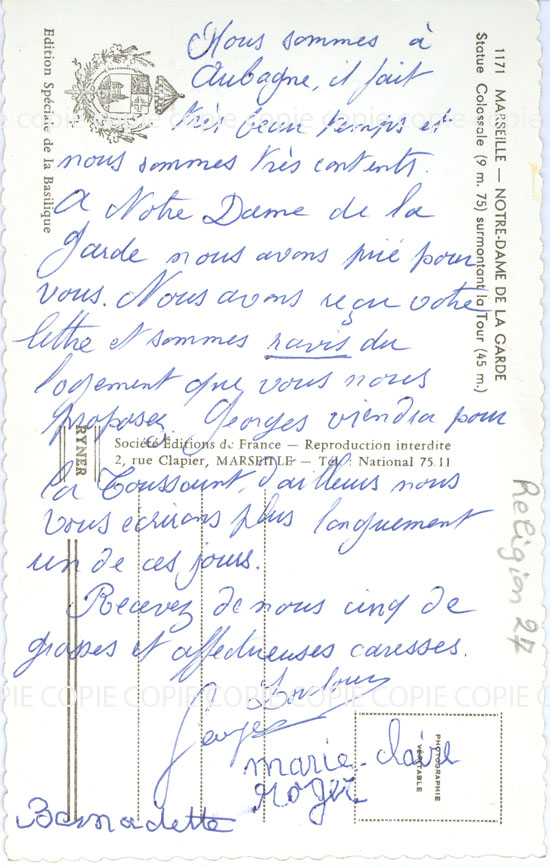 Nous sommes à
Aubagne, il fait
très beau temps et
nous sommes très contents.
A Notre Dame de la
Garde nous avons prié pour
vous. Nous avons reçu votre
lettre et sommes ravis du
logement que vous nous
proposez. Georges viendra pour
la Toussaint, d'ailleurs nous
vous ecrirons plus longuement
un de ces jours.
Recevez de nous cinq de
grosses et affectueuses caresses.
Georges
marie-claire
Roger
Bernadette
1171 MARSEILLE — NOTRE-DAME DE LA GARDE
Statue Colossale (9 m. 75) surmontant la Tour (45 m.)
Edition Spéciale de la Basilique
RYNER
Société Editions de France — Reproduction interdite
2, rue Clapier, MARSEILLE — Tél. National 75.11
PHOTOGRAPHIE
VÉRITABLE
Religion 27
COPIE COPIE COPIE COPIE COPIE COPIE
COPIE COPIE COPIE COPIE COPIE COPIE